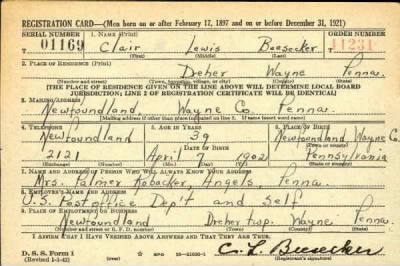 REGISTRATION CARD—(Men born on or after February 17, 1897 and on or before December 31, 1921)
SERIAL NUMBER 1. NAME (Print) ORDER NUMBER
T 01169 Clair Lewis Beesecker 11231
(First) (Middle) (Last)
2. PLACE OF RESIDENCE (Print)
Dreher Wayne Penna.
(Number and street) (Town, township, village, or city) (County) (State)
[THE PLACE OF RESIDENCE GIVEN ON THE LINE ABOVE WILL DETERMINE LOCAL BOARD
JURISDICTION; LINE 2 OF REGISTRATION CERTIFICATE WILL BE IDENTICAL]
3. MAILING ADDRESS
Newfoundland, Wayne Co. Penna.
[Mailing address if other than place indicated on line 2. If same insert word same]
4. TELEPHONE 5. AGE IN YEARS 6. PLACE OF BIRTH
Newfoundland 39 Newfoundland, Wayne Co.
DATE OF BIRTH (Town or county)
2121 April 7 1902 Pennsylvania
(Exchange) (Number) (Mo.) (Day) (Yr.) (State or country)
7. NAME AND ADDRESS OF PERSON WHO WILL ALWAYS KNOW YOUR ADDRESS
Mrs. Palmer Robacker, Angels, Penna.
8. EMPLOYER'S NAME AND ADDRESS
U.S. Post office Dep't and Self
9. PLACE OF EMPLOYMENT OR BUSINESS
Newfoundland Dreher twp. Wayne Penna.
(Number and street or R. F. D. number) (Town) (County) (State)
I AFFIRM THAT I HAVE VERIFIED ABOVE ANSWERS AND THAT THEY ARE TRUE.
D. S. S. Form 1
(Revised 1-1-42) GPO 16—21630-1 C. L. Beesecker